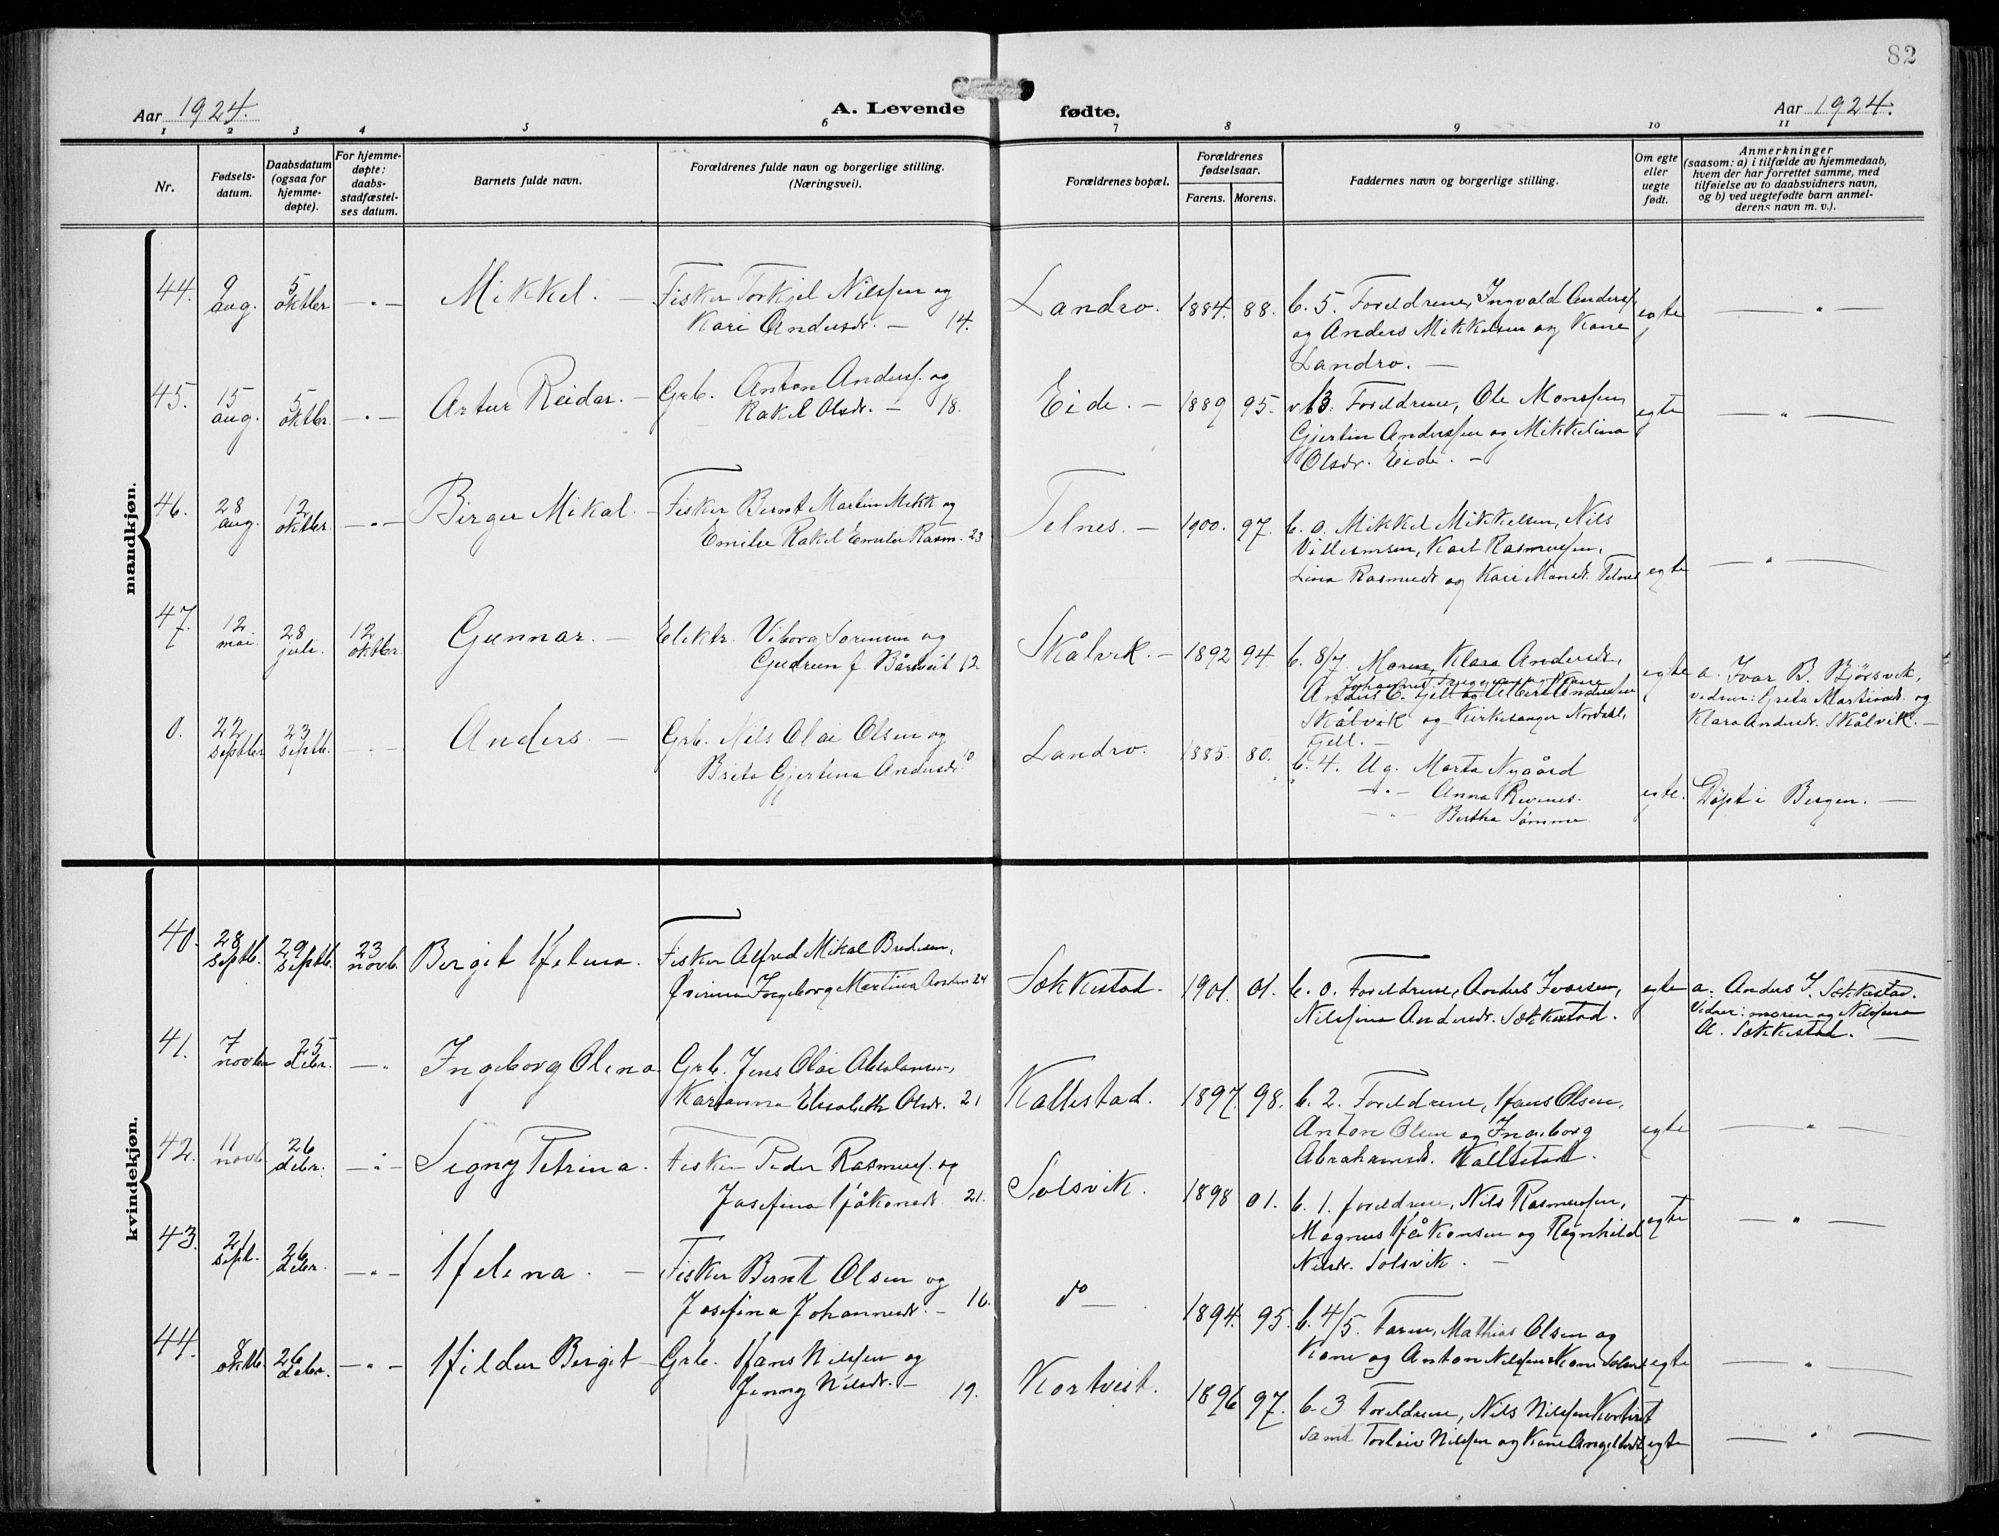 82
Aar 1924.
A. Levende fødte.
Aar 1924.
1 2 3 4 5 6 7 8 9 10 11
Nr.
Fødsels-
datum.
Daabsdatum
(ogsaa for
hjemme-
døpte).
For hjemme-
døpte:
daabs-
stadfæstel-
ses datum.
Barnets fulde navn.
Forældrenes fulde navn og borgerlige stilling.
(Næringsvei).
Forældrenes bopæl.
Forældrenes
fødselsaar.
Farens. Morens.
Faddernes navn og borgerlige stilling.
Om egte
eller
uegte
født.
Anmerkninger
(saasom: a) i tilfælde av hjemmedaab,
hvem der har forrettet samme, med
tilføielse av to daabsvidners navn,
og b) ved uegtefødte barn anmel-
derens navn m. v.).
mandkjøn.
44. 9 aug. 5 oktbr. - " - Mikkel. —
Fisker Torkjel Nilssen og
Kari Andersdr. — 14.
Landro. 1884. 88.
b. 5. Foreldrene, Ingvald Anderss.
og Anders Mikkelsen og Kone
Landro. —
egte — " —
45. 15 aug. 5 oktbr. - " - Artur Reidar. —
Grb. Anton Anderss. og
Rakel Olsdr. — 18.
Eide. — 1889 95.
v. b. 3. Foreldrene, Ole Monssen,
Gjertin Anderssen og Mikkelina
Olsdr. Eide. —
egte — " —
46. 28 aug. 12 oktbr. - " - Birger Mikal. —
Fisker Bernt Martin Mikk og
Emilie Rakel Rasm. 23
Telnes. — 1900. 97.
b. 0. Mikkel Mikkelsen, Nils
Villumsen, Karl Rasmussen,
Lina Rasmusdr. og Kari Monsdr. Telnes
egte — " —
47. 12 mai. 28 juli. 12 oktbr. Gunnar. —
Elektr. Viborg Sørensen og
Gudrun f. 12
Skålvik. — 1892 94.
b. 8/7. Moren, Klara Andersdr.,
Johannes og Kone
Anders C. Fjell og Anderssen
Skålvik og Kirkesanger Nordahl,
Fjell. —
egte
a. Ivar B. Bjørsvik,
vidner: Greta Martinsdr. og
Klara Andersdr. Skålvik. —
0. 22 septbr. 23 septb. - " - Anders. —
Grb. Nils Olai Olsen og
Brita Gjertina Andersdr. 10
Landro. 1885. 80.
b. 4. Ug. Marta Nygård
- " - Anna Revenes.
- " - Bertha Sømme
egte. Døpt i Bergen. —
kvindekjøn.
40. 28 septb. 29 septb. 23 novb. Bergit Helena.
Fisker Alfred Mikal Bredesen,
Ingeborg Martina Anders 24
Søkkestad. 1901. 01.
b. 0. Foreldrene, Anders Ivarsen,
Nilssina Andersdr. Søkkestad.
egte
a. Anders I. Søkkestad.
Vidner: moren og Nilssina
A. Søkkestad. —
41. 7 novbr. 25 debr. - " Ingeborg Olena
Grb. Jens Olai Abrahamsen,
Karianna Elisabeth Olsdr. 21
Kallestad. 1897. 98.
b. 2. Foreldrene, Hans Olsen,
Anton Olsen og Ingeborg
Abrahamsdr. Kallestad.
egte — " —
42. 11 novb. 26 debr. - " - Signy Petrina.
Fisker Peder Rasmuss. og
Josefina Håkonsdr. 21.
Solsvik. 1898 01.
b. 1. foreldrene, Nils Rasmussen,
Magnus Håkonsen og Ragnhild
Nilsdr. Solsvik. —
egte — " —
43. 21 sept. 26 debr. - " - Helena. —
Fisker Bernt Olsen og
Josefina Johannesdr. — 16.
do — 1894. 95.
b. 4/5. Faren, Mathias Olsen og
Kone og Anton Nilssen Kone Solsvik
egte — " —
44. 8 oktbr. 26 debr. - " - Hildur Bergit —
Grb. Hans Nilssen og
Jenny Nilsdr. — 19.
Kortveit. 1896 97.
b. 3 Foreldrene, Nils Nilssen Kortveit
samt Torleiv Nilssen og Kone Angeltveit
egte — " —